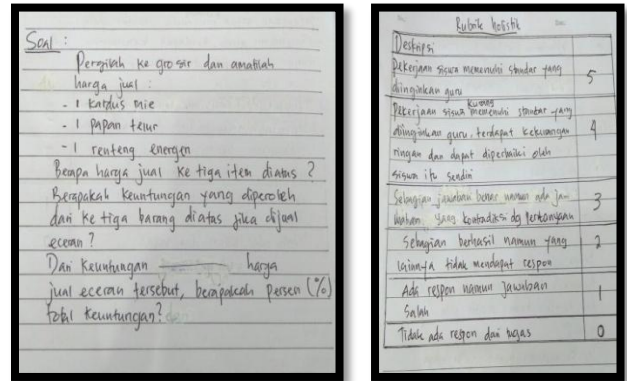 Soal :
Pergilah ke grosir dan amatilah
harga jual :
- 1 kardus mie
- 1 papan telur
- 1 renteng energen
Berapa harga jual ke tiga item diatas ?
Berapakah keuntungan yang diperoleh
dari ke tiga barang diatas jika dijual
eceran ?
Dari keuntungan harga
jual eceran tersebut, berapakah persen (%)
total keuntungan?
Rubrik holistik
Deskripsi
Pekerjaan siswa memenuhi standar yang
diinginkan guru
5
kurang
Pekerjaan siswa memenuhi standar yang
diinginkan guru, terdapat kekurangan
ringan dan dapat diperbaiki oleh
siswa itu sendiri
4
Sebagian jawaban benar namun ada jawaban
yang kontradiksi dg pertanyaan
3
Sebagian berhasil namun yang
lainnya tidak mendapat respon
2
Ada respon namun jawaban
salah
1
Tidak ada respon dari tugas
0